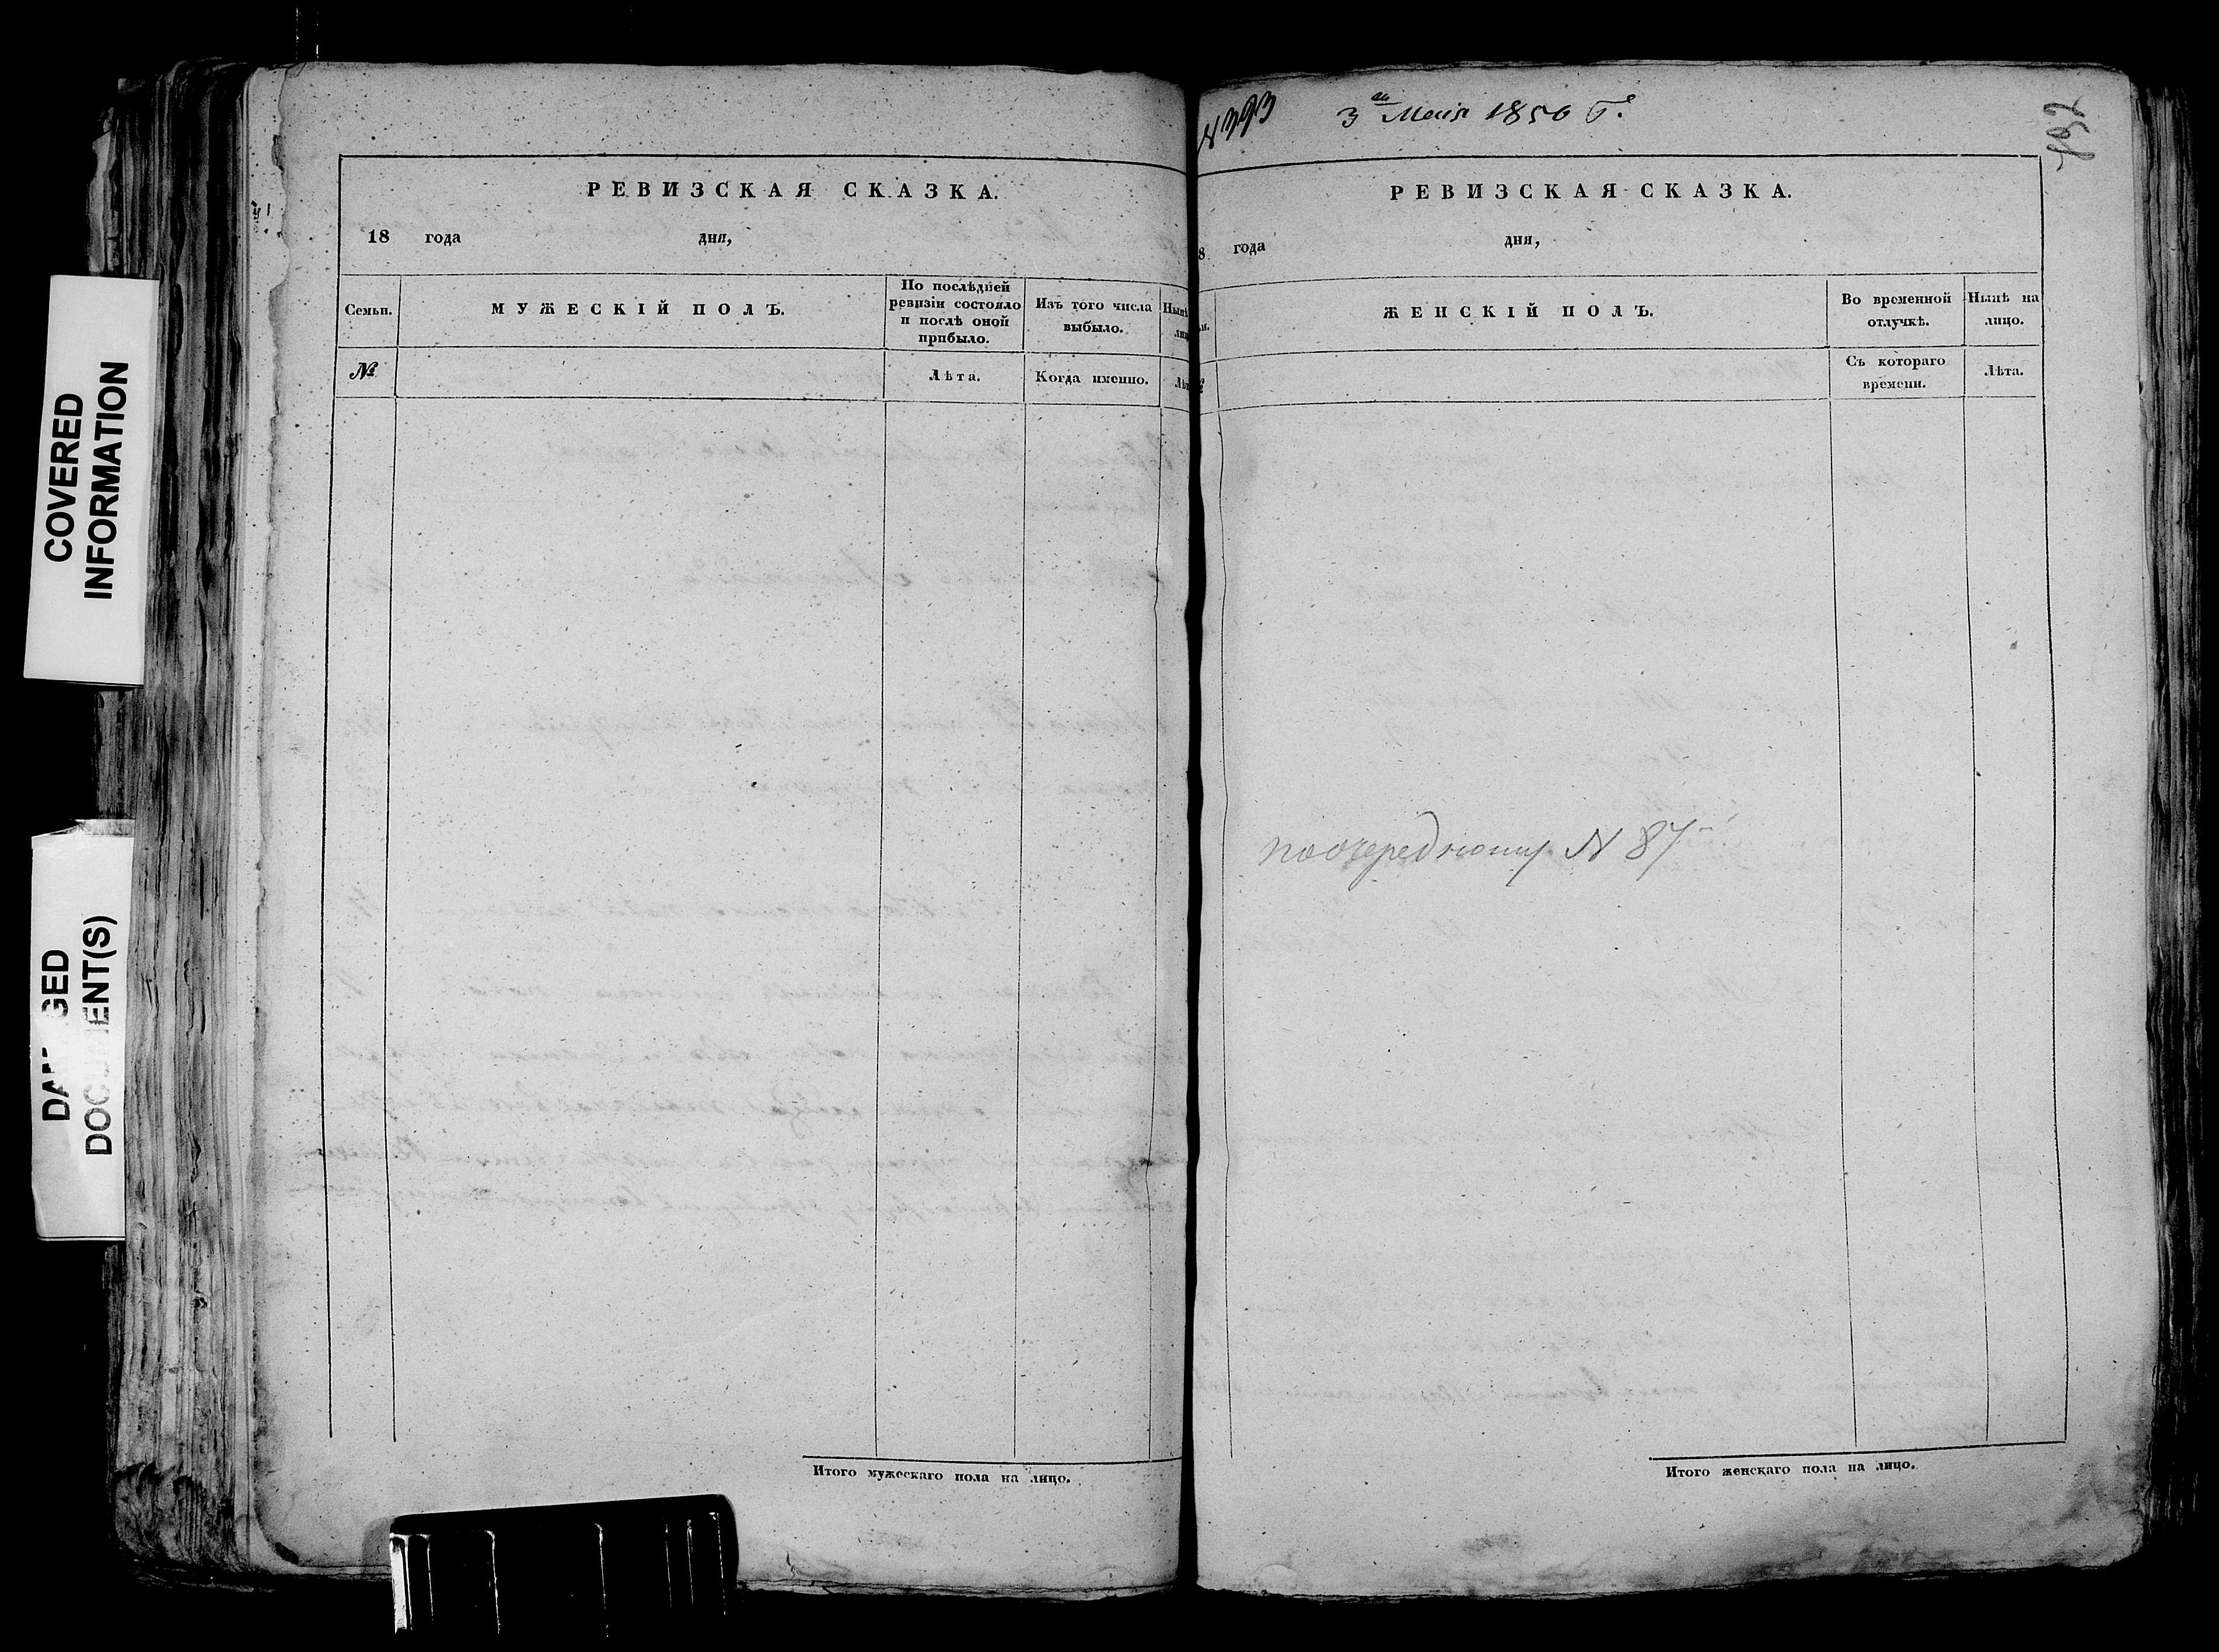 COVERED
INFORMATION
DOCUMENT(S)
РЕВИЗСКАЯ СКАЗКА.
18 года дня,
Семьи.
МУЖЕСКІЙ ПОЛЪ.
По послѣдней
ревизіи состояло
и послѣ оной
прибыло.
Изъ того числа
выбыло.
№
Лѣта.
Когда именно.
Итого мужескаго пола на лицо.
3 Маія 1850 Г.
РЕВИЗСКАЯ СКАЗКА.
8 года дня,
ЖЕНСКІЙ ПОЛЪ.
Во временной
отлучкѣ.
Нынѣ на
лицо.
Съ котораго
времени.
Лѣта.
по очередному N 87
Итого женскаго пола на лицо.